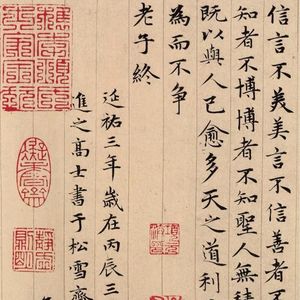 信言不美美言不信善者不
知者不博博者不知聖人無積
既以與人己愈多天之道利
為而不爭
老子終
延祐三年歲在丙辰三
進之高士書于松雪齋